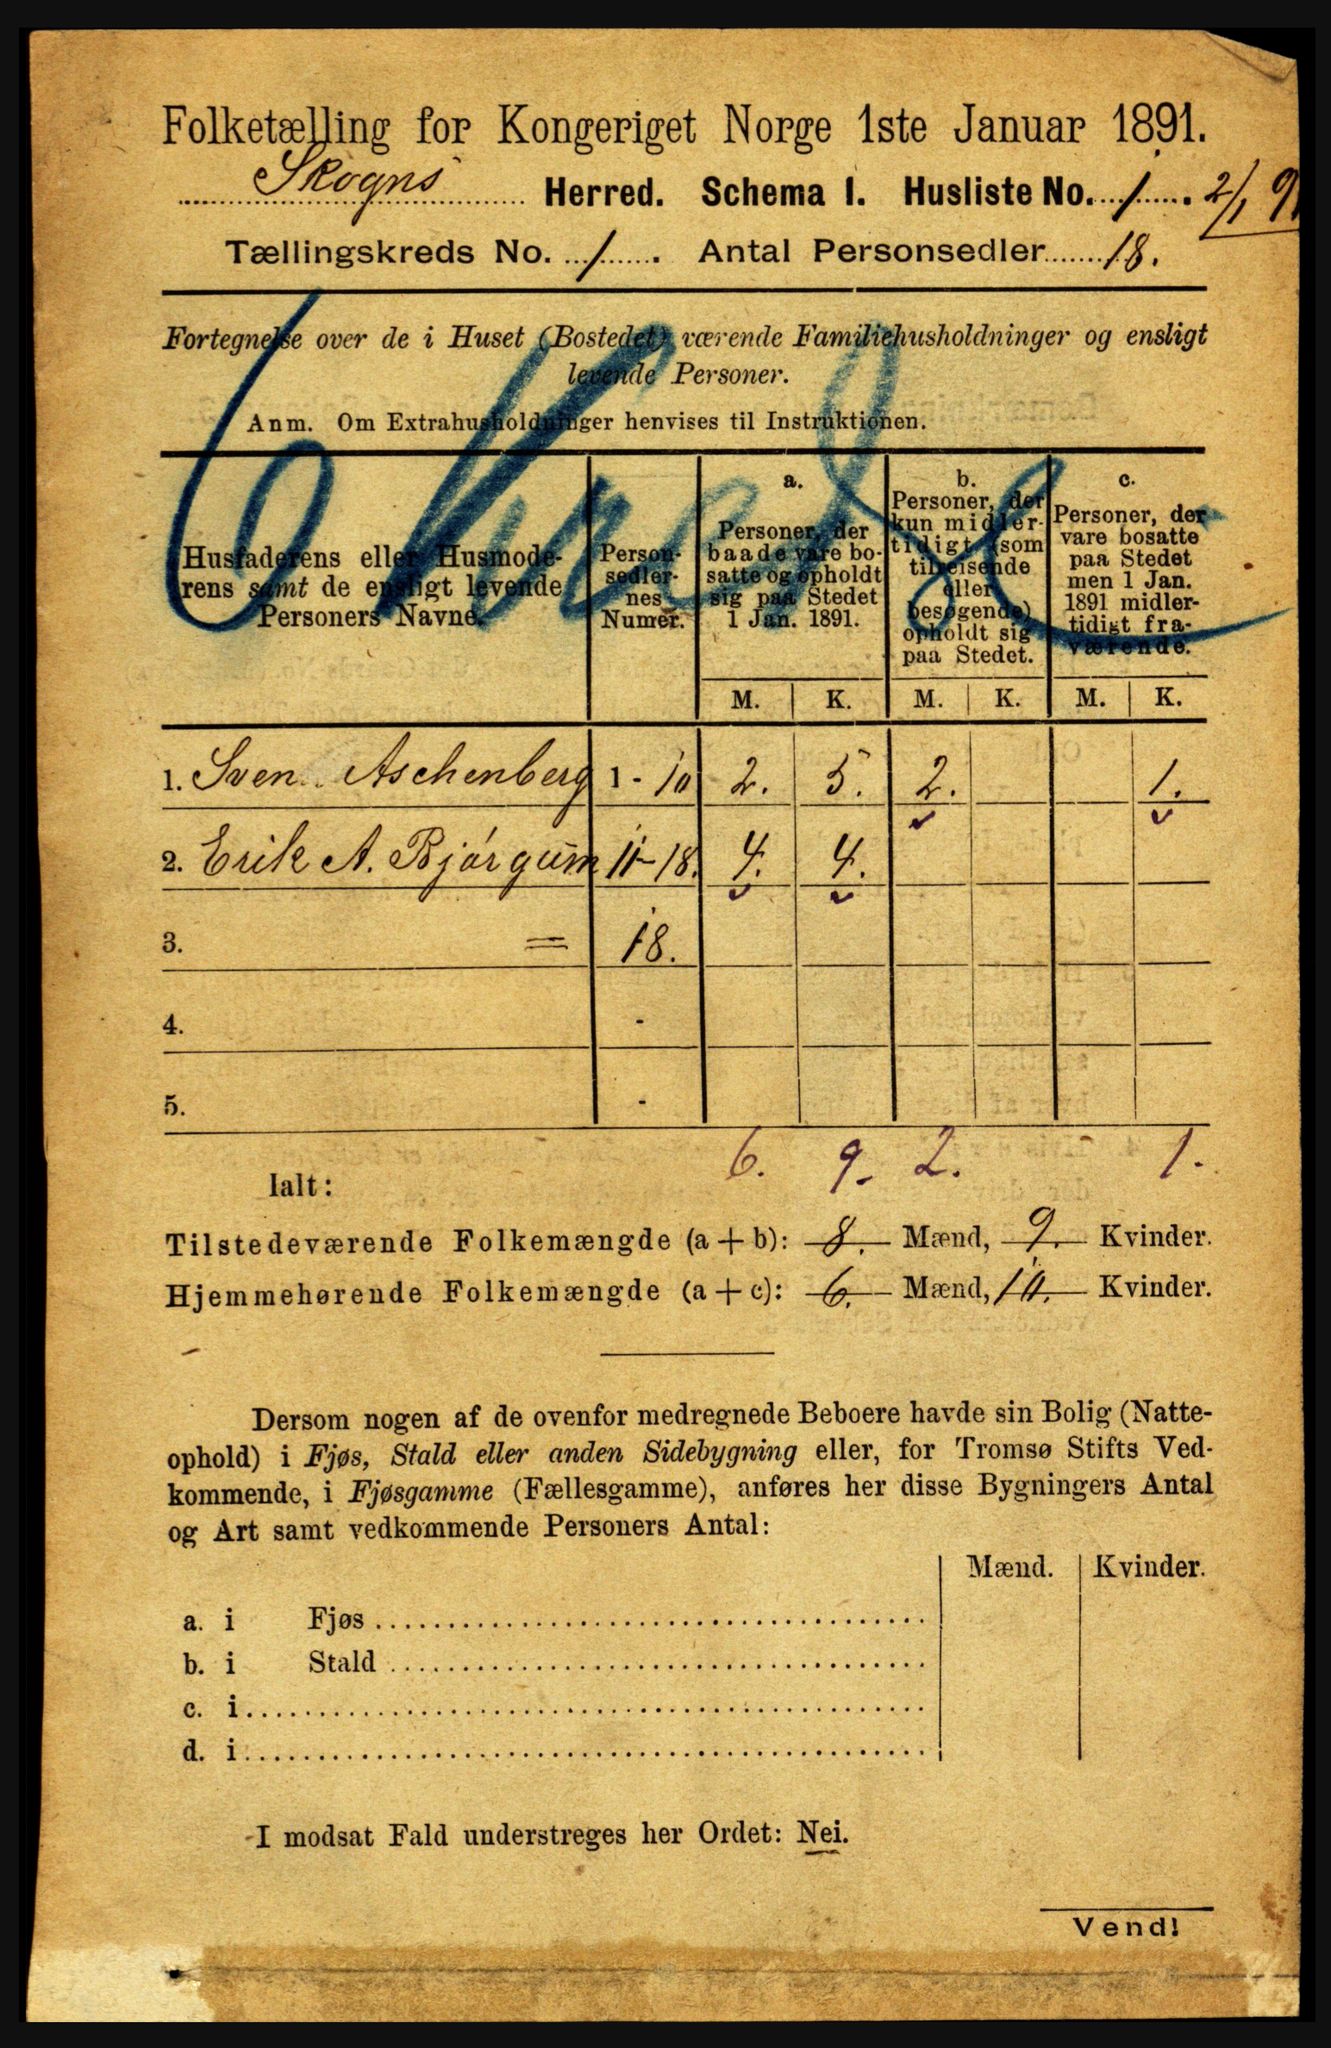 Folketælling for Kongeriget Norge 1ste Januar 1891.
Skogns Herred. Schema I. Husliste No. 1. 2/1 91
Tællingskreds No. 1. Antal Personsedler 18.
Fortegnelse over de i Huset (Bostedet) værende Familiehusholdninger og ensligt
levende Personer.
Anm. Om Extrahusholdninger henvises til Instruktionen.
Husfaderens eller Husmode-
rens samt de ensligt levende
Personers Navne.
Person-
sedler-
nes
Numer.
a.
Personer, der
baade vare bo-
satte og opholdt
sig paa Stedet
1 Jan. 1891.
b.
Personer, der
kun midler-
tidigt (som
tilreisende
eller
besøgende)
opholdt sig
paa Stedet.
c.
Personer, der
vare bosatte
paa Stedet
men 1 Jan.
1891 midler-
tidigt fra-
værende.
M. K. M. K. M. K.
1. Sven Aschenberg 1 - 10 2. 5. 2. 1.
2. Erik A. Bjørgum 11-18. 4. 4.
3. = 18.
4. -
5. -
6. 9. 2. 1.
Ialt:
Tilstedeværende Folkemængde (a + b): 8. Mænd, 9. Kvinder.
Hjemmehørende Folkemængde (a + c): 6. Mænd, 10. Kvinder.
Dersom nogen af de ovenfor medregnede Beboere havde sin Bolig (Natte-
ophold) i Fjøs, Stald eller anden Sidebygning eller, for Tromsø Stifts Ved-
kommende, i Fjøsgamme (Fællesgamme), anføres her disse Bygningers Antal
og Art samt vedkommende Personers Antal:
Mænd. Kvinder.
a. i Fjøs
b. i Stald
c. i
d. i
I modsat Fald understreges her Ordet: Nei.
Vend!